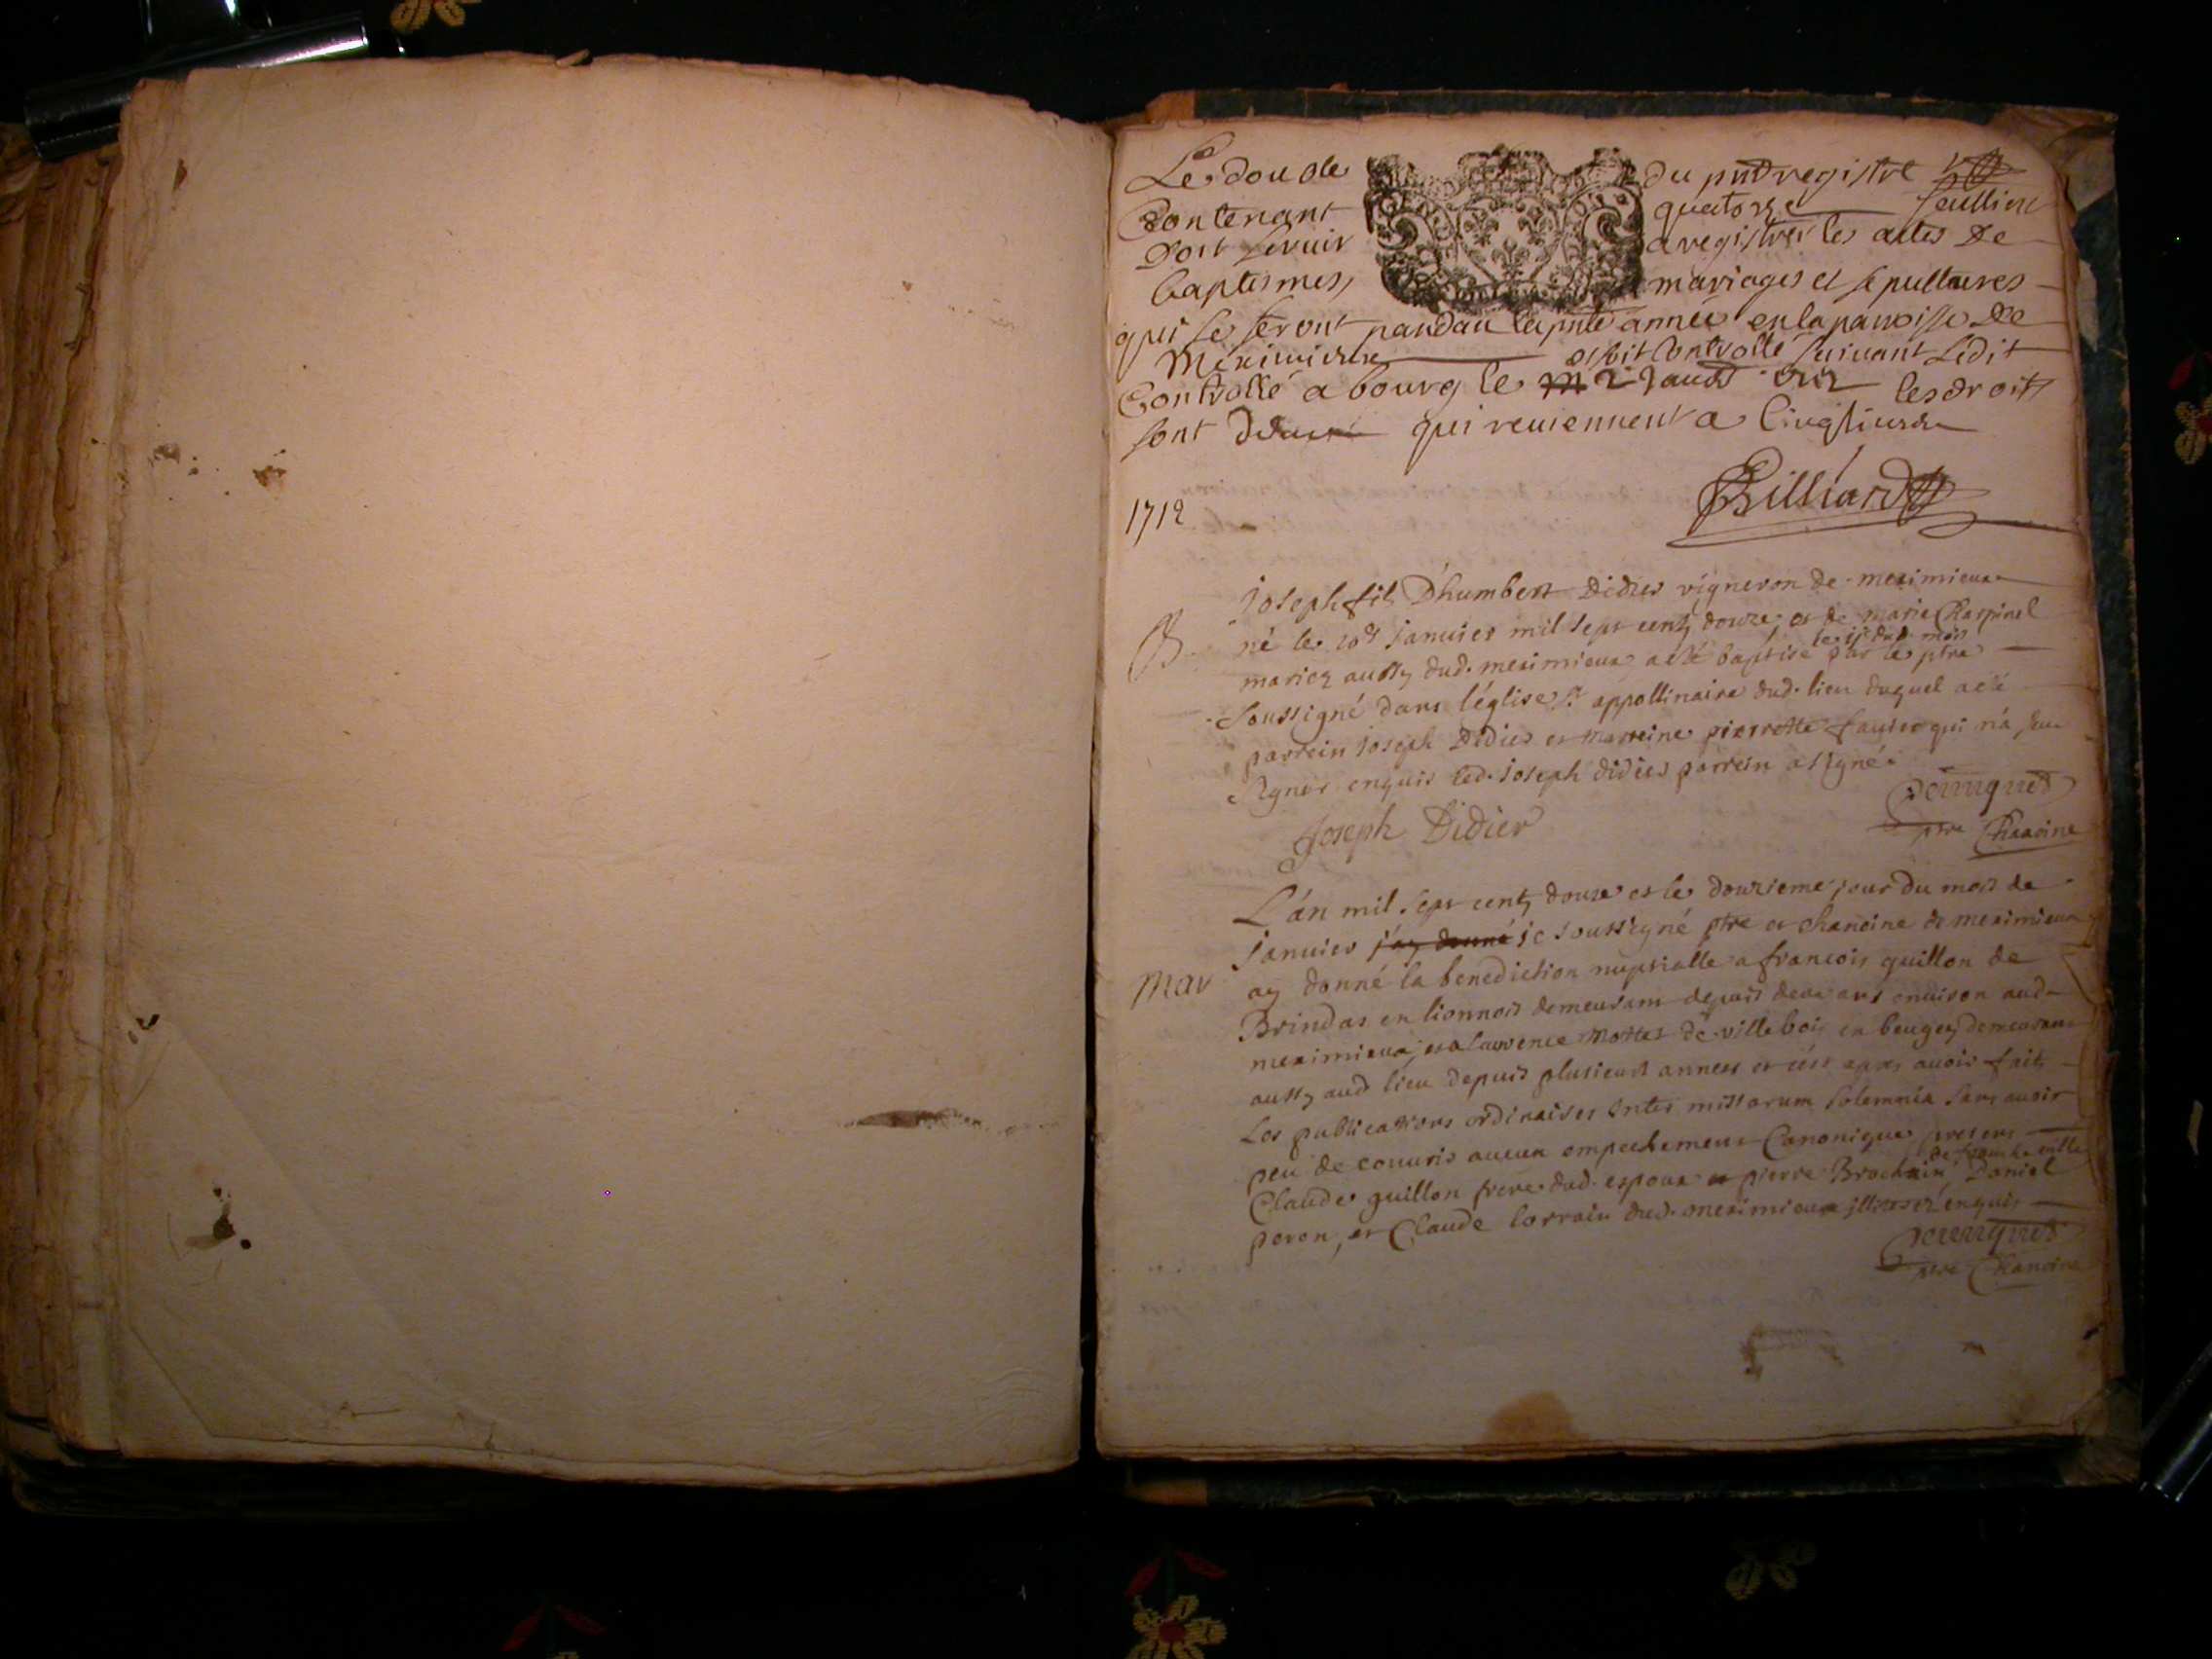 Le double du pnt registre
Contenant quatorze feullietz
Doit servir a registrer les actes de
baptesmes, mariages et sepultures
qui se feront pandan la pnte année en la parroisse de
Meximieux et soit controllé suivant Ledit
Controllé a bourg le 2 Janvr 1712 les droits
sont qui reviennent a Cinq livres
Billiard
1712
B
Joseph fils D'humbert Didier vigneron de meximieux
né le 10e Janvier mil sept centz douze et de marie Chapinel
le dud. mois
mariez aussy dud. meximieux a eté baptisé par le ptre
soussigné dans l'église St appollinaire dud. lieu duquel a eté
parrein joseph Didier et marreine pierrette qui n'a sceu
signer enquis led. joseph didier parrein a signé.
ptre Chanoine
Joseph Didier
L'án mil sept centz douze et le douzieme jour du mois de
Janvier j'ay donné je soussigné ptre et chanoine de meximieux
mar
ay donné la benediction nuptialle a francois guillon de
Brindas en lionnois demeurant depuis deux ans environ aud.
meximieux, et a laurence mottet de villebois en beugey demeurant
aussy aud lieu depuis plusieurs années et c'est apres avoir fait
Les publications ordinaires Inter missarum solemnia sans avoir
peu de couvris aucun empechement Canonique, presens
de franche ville
Claude guillon frere dud. espoux et pierre Brochain, Daniel
peron, et Claude lorrain dud. meximieux illiterez enquis
ptre Chanoine